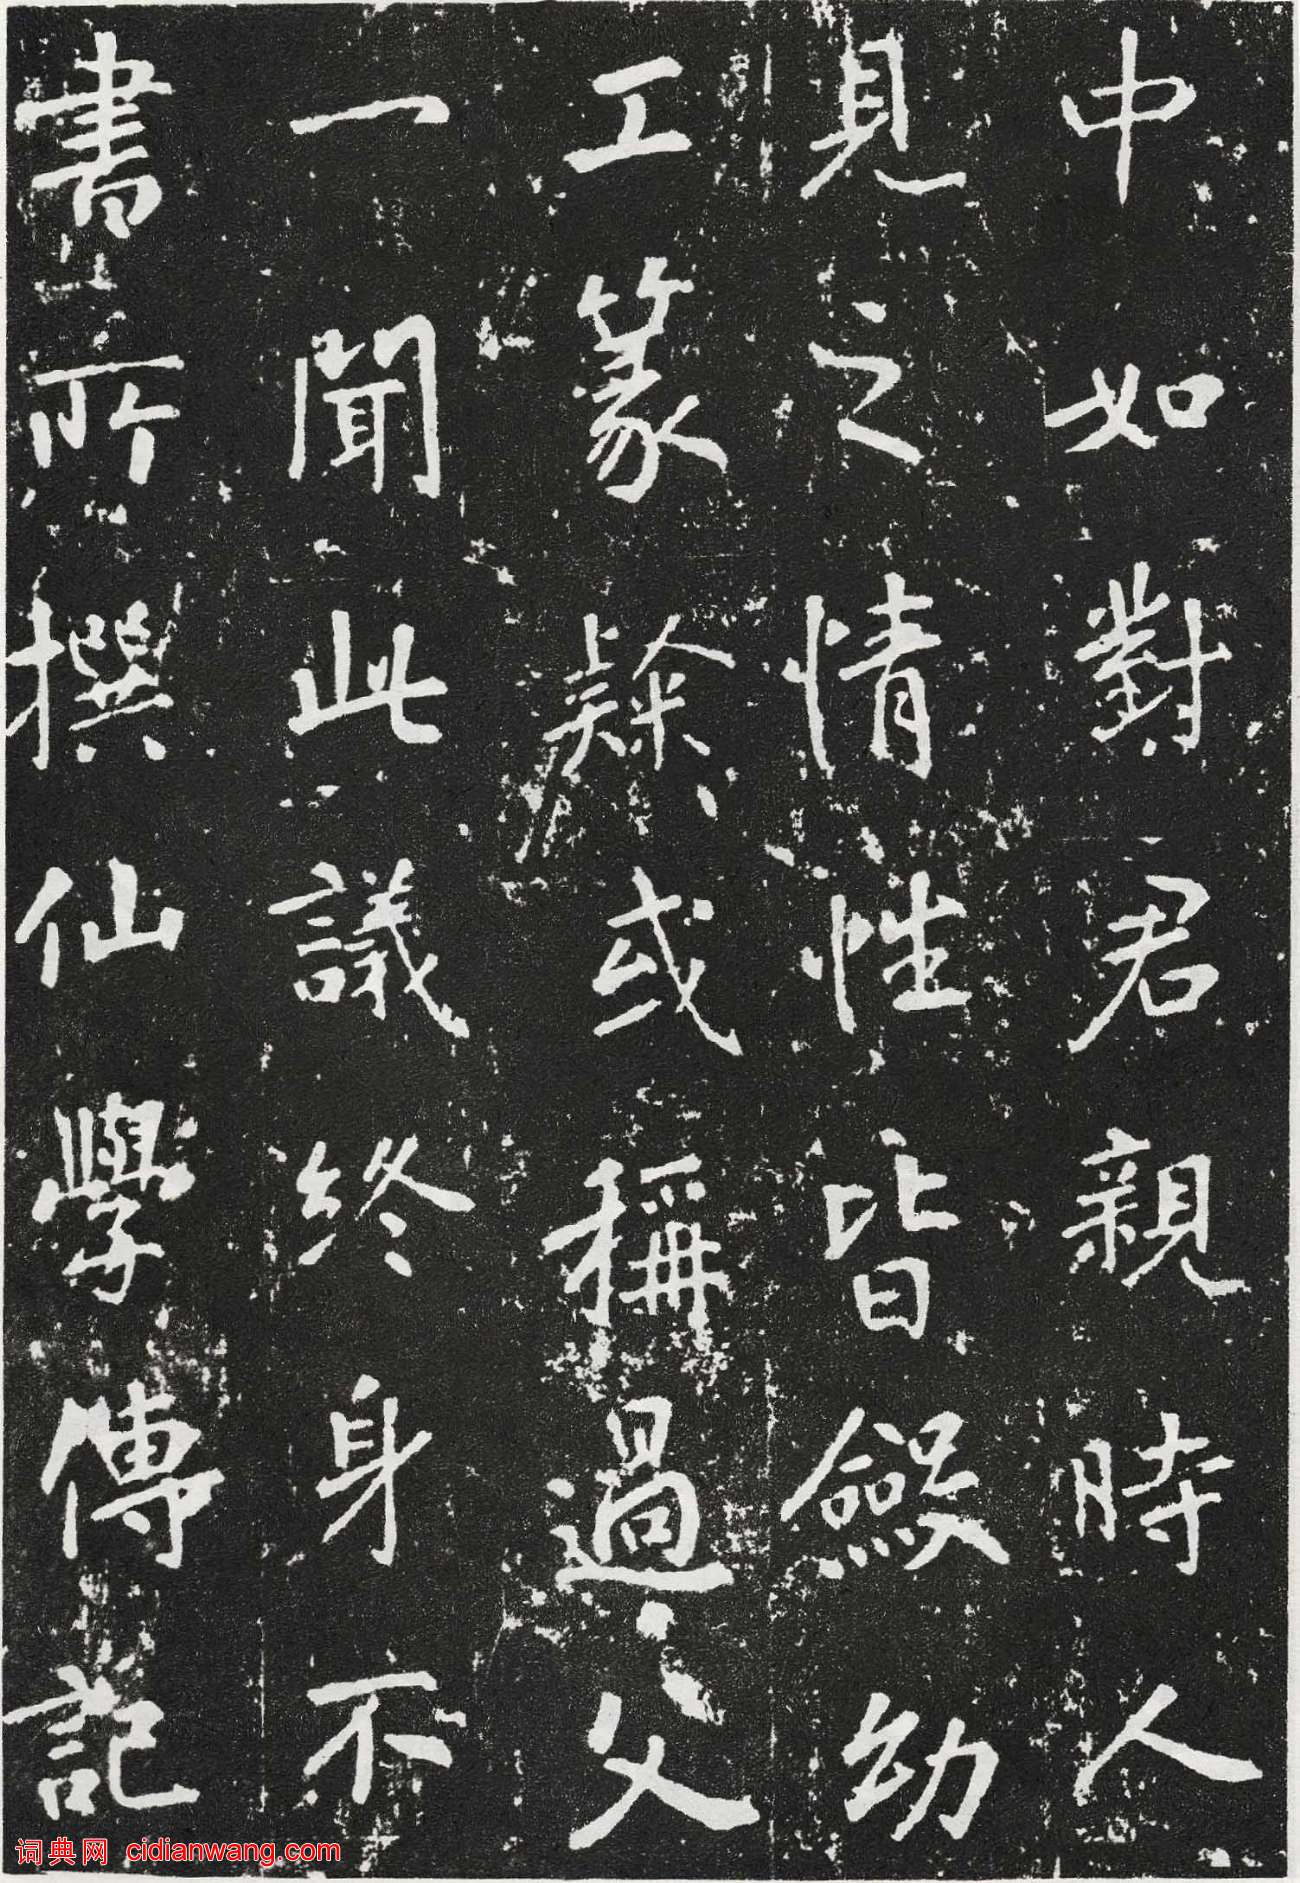 中如對君親時人
見之情性皆斂幼
工篆籀或稱過父
一聞此議終身不
書所撰仙學傳記
词典网 cidianwang.com